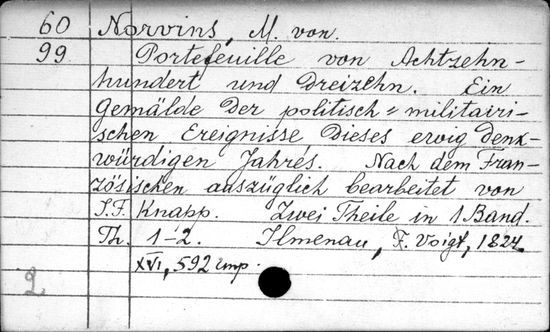 60 Norvins, M. von.
99 Portefeuille von Achtzehn-
hundert und Dreizehn. Ein
Gemälde Der politisch = militairi-
schen Ereignisse Dieses ewig Denk-
würdigen Jahres. Nach dem Fran-
zösischen auszüglich bearbeitet von
J.F. Knapp. Zwei Theile in 1 Band.
Th. 1-2. Ilmenau, F. Voigt, 1824
XVI, 592 стр.
2